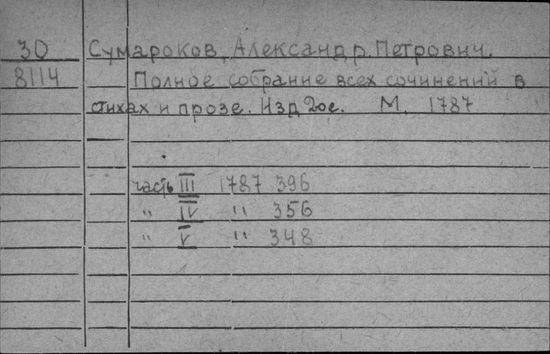 30 Сумароков, Александр Петрович.
8114 Полное собрание всех сочинений в
стихах и прозе. Изд 2ое. М. 1787
часть III 1787 396
" IV " 356
" V " 348